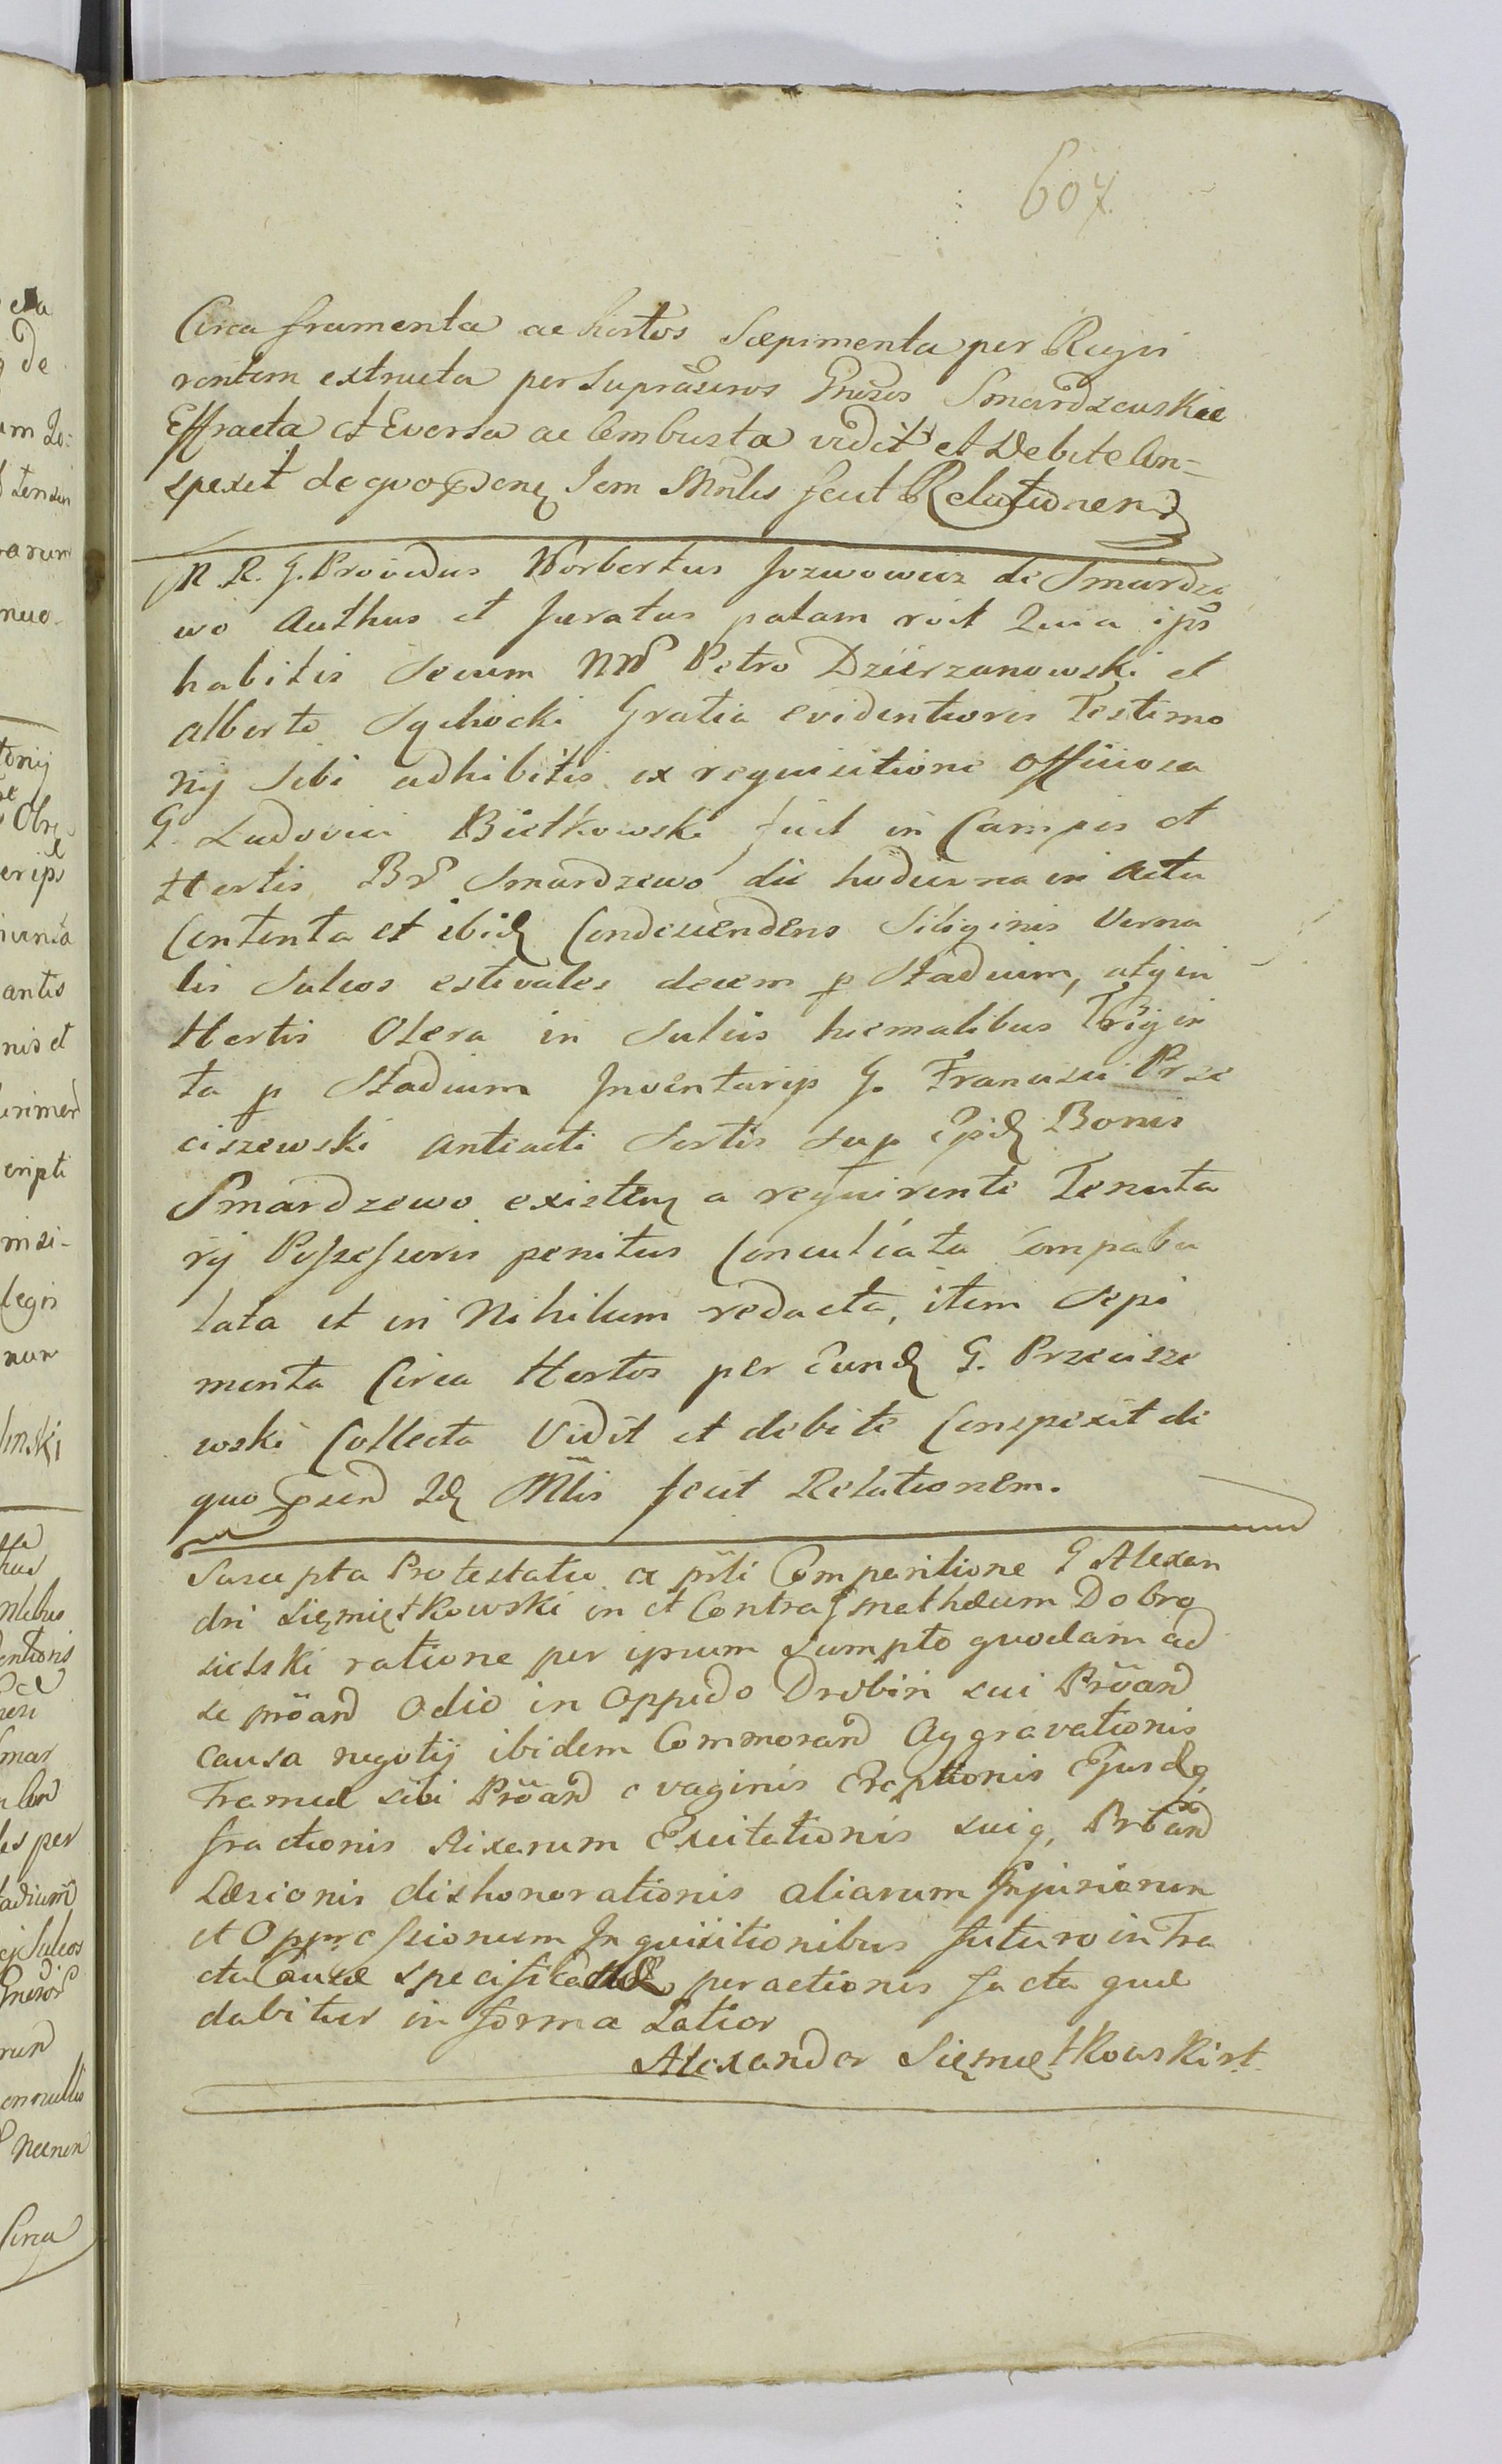 607.
Circa frumenta ac hortos Sæpimenta per Reqvi
rentem extructa per Suprascros Gnrosos Smardzewskie
Effracta et Eversa ac Combusta vidit et Debite Con-
spexit de qvo psens Jem Mnlis fecit Relationem
M. R. G. Providus Norbertus Jozwowicz de Smardze
wo Authus et Juratus palam rcit Quia ips
habitis Secum NN Petro Dzierzanowski et
Alberto Sąchocki Gratia evidentioris Testimo
nij Sibi adhibitis ex requisitione officiosa
G. Ludovici Bielkowski fuit in Campis et
Hortis Br Smardzewo die hodierna in Actu
Contenta et ibid Condescendens Siliginis Verna
lis Sulcos estivales decem p Stadium, atq in
Hortis Olera in Sulcis hiemalibus Trigin
ta p Stadium Inventarijs G. Francisci Prze
ciszewski anteacti Sortis sup Epid Bonis
Smardzewo existen a requirente Tenuta
rij Possessoris penitus Conculcata Compabu
lata et in Nihilum redacta, item Sepi
menta Circa Hortos per Eund G. Przecisze
wski Collecta Vidit et debite Conspexit de
quo psens Id Mlis fecit Relationem.
Suscepta Protestatio ex prsti Comparitione G Alexan
dri Siemiętkowski in et Contra Gmathæum Dobro
sielski ratione per ipsum Sumpto quodam ad
se proand Odio in Oppido Drobin sui Proand
causa negotij ibidem Commorand Aggravationis
Frameæ sibi Proand e vaginis Ereptionis Ejusdq
fractionis Rixarum Excitationis suiq, Proand
Læsionis dishonorationis aliarum Injuriarum
et Oppressionum Inquisitionibus futuro in Tra
ctu Causæ specificand peractionis facta quæ
dabitur in forma Latior
Alexander Siemiętkowski st.